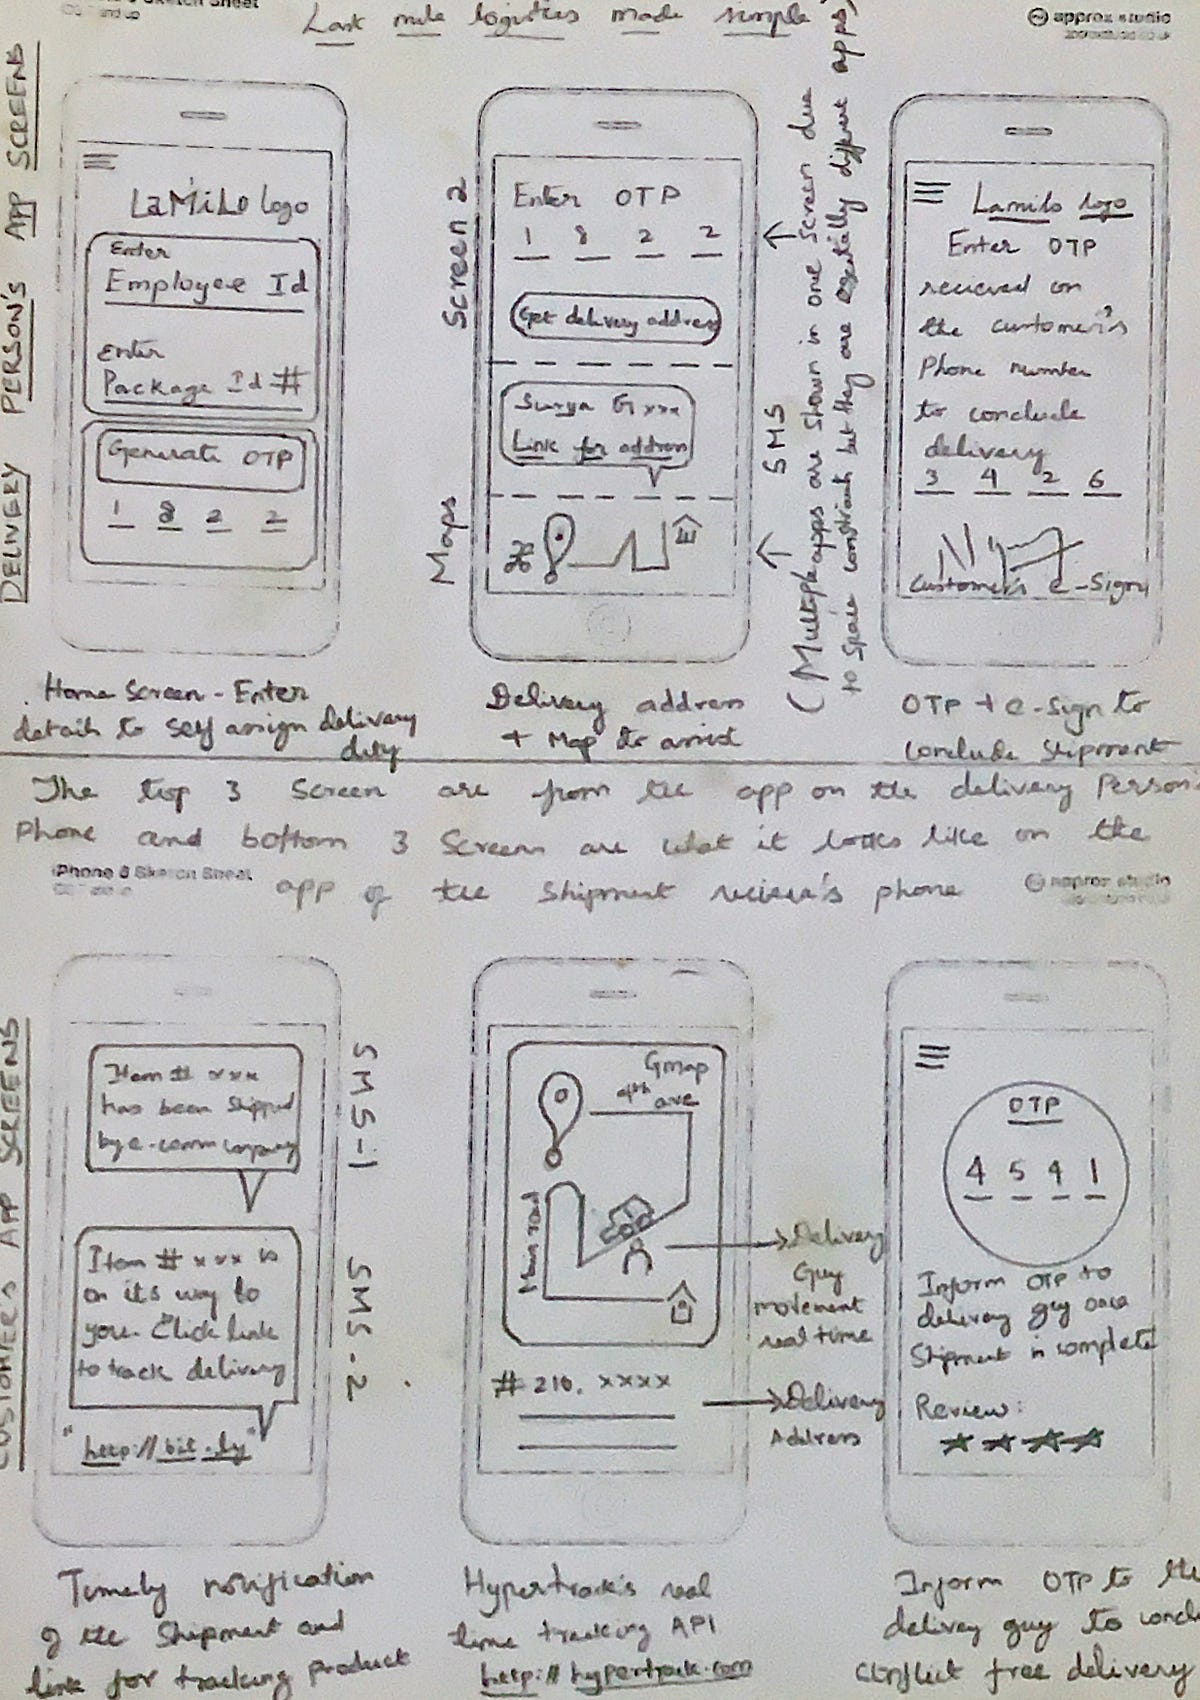 Sketch Sheet
Last mile logistics made simple
approx studio
DELIVERY PERSON'S APP SCREENS
LaMiLo logo
Enter
Employee Id
Enter
Package Id #
Generate OTP
1 8 2 2
Home Screen - Enter
details to self assign delivery
duty
Screen 2
Enter OTP
1 8 2 2
Get delivery address
Surya G xxx
Link for address
SMS
Maps
Delivery address
+ Map to assist
(Multiple apps are shown in one screen due
to space constraint but they are essentially different apps)
Lamilo logo
Enter OTP
recieved on
the customer's
Phone number
to conclude
delivery
3 4 2 6
Customer's e-Sign
OTP + e-Sign to
conclude shipment
The top 3 Screen are from the app on the delivery Person
Phone and bottom 3 Screen are what it looks like on the
app of the Shipment reciever's phone
iPhone 6 Sketch Sheet
approx studio
CUSTOMER'S APP SCREENS
Item # xxx
has been Shipped
by e-comm company
SMS-1
Item # xxx is
on its way to
you. Click link
to track delivery
"http://bit.ly"
SMS-2
Timely notification
of the Shipment and
link for tracking product
Gmap
4th ave
Main road
Delivery
Guy
movement
real time
# 210, xxxx
Delivery
Address
Hypertrack's real
time tracking API
http://hypertrack.com
OTP
4 5 4 1
Inform OTP to
delivery guy once
Shipment is complete
Review:
Inform OTP to the
delivery guy to
Conflict free delivery